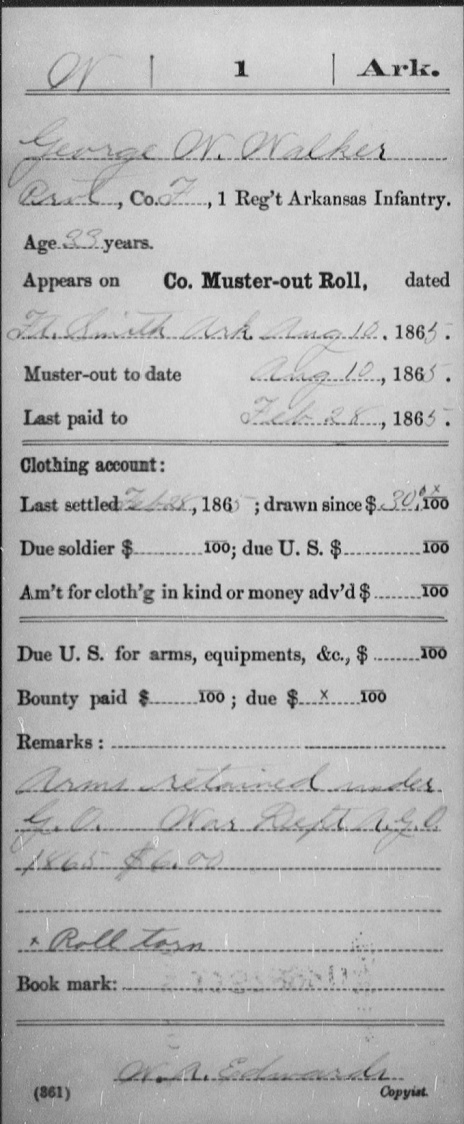 W 1 Ark.
George W. Walker
Pvt, Co. F, 1 Reg't Arkansas Infantry.
Age 33 years.
Appears on Co. Muster-out Roll, dated
Ft. Smith Ark Aug 10, 1865.
Muster-out to date Aug 10, 1865.
Last paid to Feb 28, 1865.
Clothing account:
Last settled Feb 28, 1865; drawn since $ 30 x/100
Due soldier $ 100; due U. S. $ 100
Am't for cloth'g in kind or money adv'd $ 100
Due U. S. for arms, equipments, &c., $ 100
Bounty paid $ 100; due $ x 100
Remarks:
Arms retained under
G.O. War Dept A.G.O.
1865 $6.00
x Roll torn
Book mark:
W. A. Edwards
(361) Copyist.